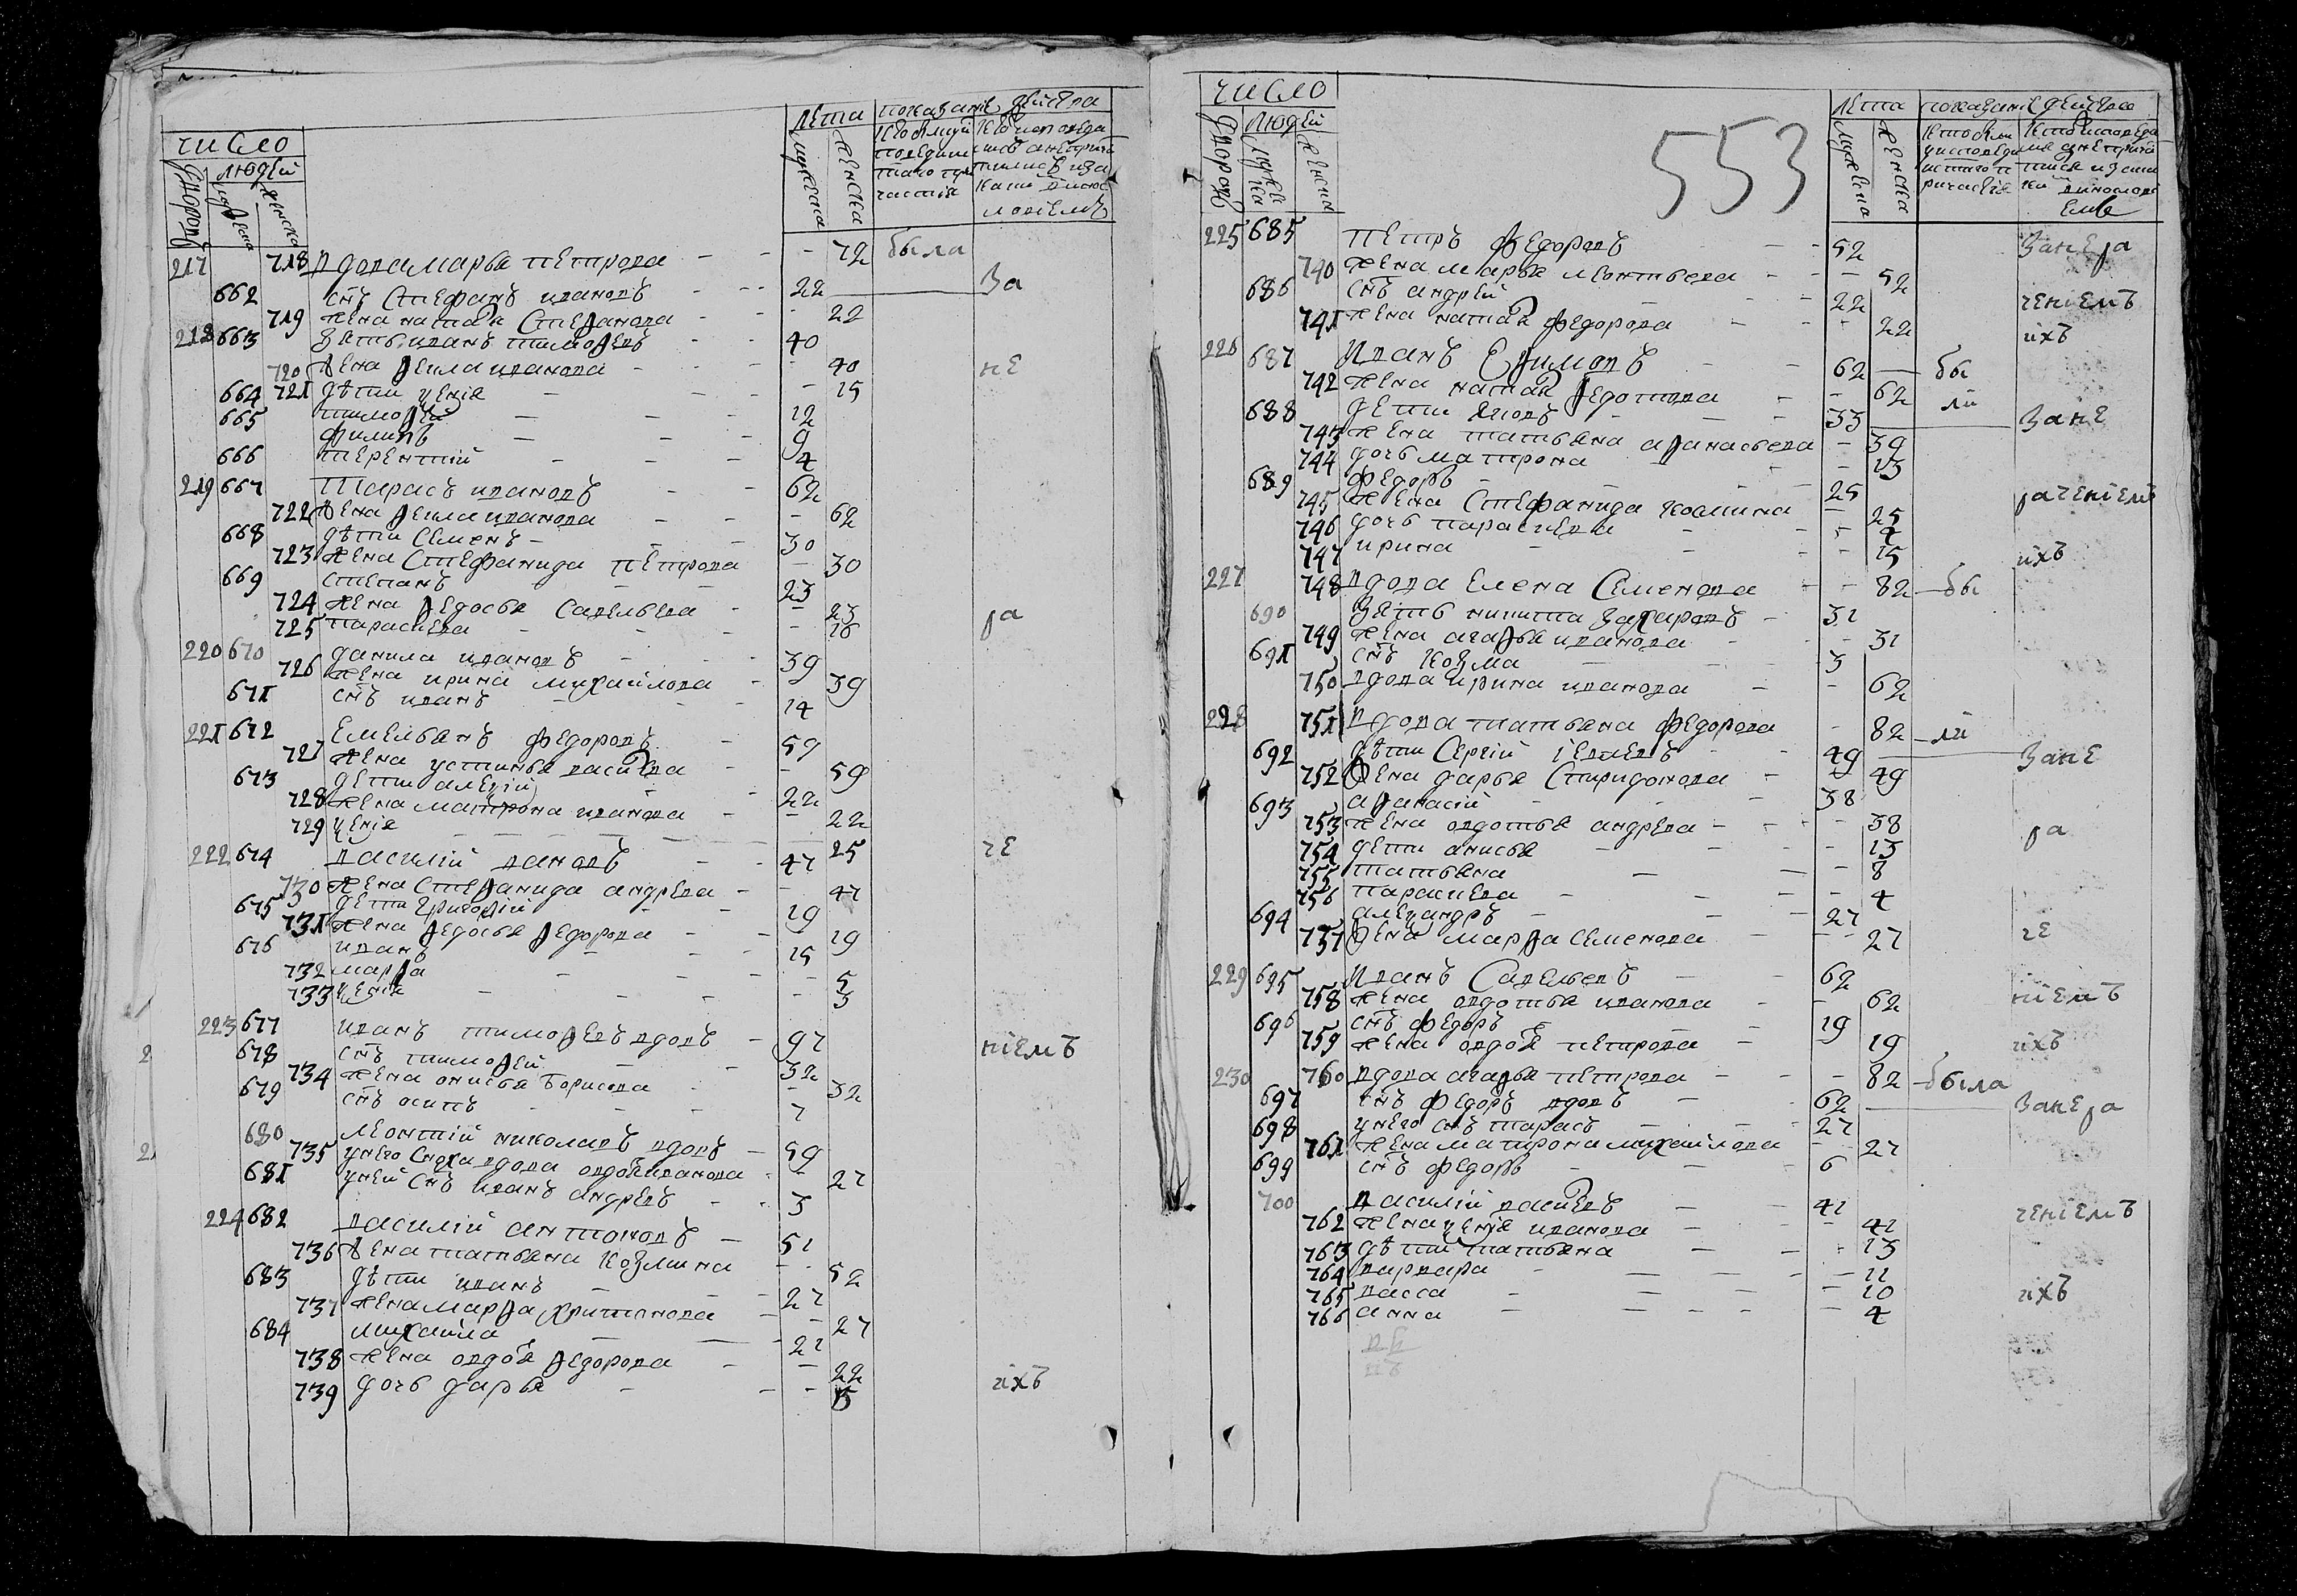 число
людей
лета
показание действа
дворовъ
мужеска
женска
мужеска
женска
217 718 вдова марья петрова - - - 72 была
662 снъ Стефанъ ивановъ - - 22 За
719 жена наталья Стефанова - - - 22
218 663 Зять иванъ тимофеевъ - - 40
720 жена фекла иванова - - - 40 не
664 721 дѣти ѯенія - - - 15
665 тимофей - - - 12
филипъ - - - 9
666 терентий - - - 4
219 667 Тарасъ ивановъ - - 62
722 жена фекла иванова - - - 62
668 дѣти Семенъ - - - 30
723 жена Стефанида петрова - 30
669 степанъ - - - 23
724 жена федосья Савельева - - 23
725 параскева - - - 16 ра
220 670 данила ивановъ - - 39
726 жена ирина михайлова - 39
671 снъ иванъ - - - 14
221 672 Емельянъ федоровъ - 59
727 жена устинья васильева - - 59
673 дети алеѯѣй - - 22
728 жена матрона иванова - - 22
729 ѯенія - - - 25
222 674 василий ивановъ - - 47 че
730 жена Стефанида андреева - - 47
675 дети григорий - - 19
731 жена федосья федорова - - 19
676 иванъ - - - 15
732 марфа - - - 5
733 ѯенія - - - 3
223 677 иванъ тимофеевъ вдовъ - 97
678 снъ тимофей - - 32 ніемъ
734 жена анисья борисова - - 32
679 снъ осипъ - - - 7
680 леонтий николаевъ вдовъ - 59
735 унего сноха вдова авдотья иванова - 27
681 уней снъ иванъ андреевъ - - 3
224 682 василий антоновъ - 51
736 жена татьяна козмина - - 52
683 дѣти иванъ - - - 27
737 жена марфа харитонова - - 27
684 михаила - - - 21
738 жена авдотья федорова - - 22
739 дочь дарья - - - 15 ихъ
число
людей
553
лета
показание действа
дворовъ
мужеска
женска
мужеска
женска
225 685 петръ федоровъ - - 52 Занера
740 жена марья леонтьева - - - 52
686 снъ андрей - - 22 ченіемъ
741 жена наталья федорова - - - 22 ихъ
226 687 иванъ Ефимовъ - - 62 бы
742 жена наталья федотова - - 62 ли
688 дети яковъ - - - 33 Зане
743 жена татьяна афанасьева - 39
744 дочь матрона - - - 13
689 федоръ - - - 25 раченіемъ
745 жена Стефанида козмина - 25
746 дочь параскева - - - 4
747 ирина - - - 15 ихъ
227 748 вдова Елена Семенова - - 82 бы
690 Зять никита Захаровъ - 31
749 жена агафья иванова - - - 31
691 снъ козма - - - 3
750 вдова ирина иванова - - 62
228 751 вдова татьяна федорова - 82 ли
692 дѣти Сергий - - 49 Зане
752 жена дарья Спиридонова - - 49
693 афанасий - - - 38
753 жена авдотья андреева - - - 38 ра
754 дети анисья - - - 13
755 татьяна - - - 8
756 параскева - - - 4
694 алеѯандръ - - - 27
757 жена марфа Семенова - - - 27 че
229 695 иванъ Савельевъ - - 62
758 жена авдотья иванова - - 62 ніемъ
696 снъ федоръ - - - 19
759 жена авдотья петрова - - 19 ихъ
230 760 вдова агафья петрова - - - 82 была
697 снъ федоръ вдовъ - - 62 Занера
698 унего снъ тарасъ - - - 27
761 жена матрона михайлова - - 27
699 снъ федоръ - - - 6
700 василий васильевъ - - 41 ченіемъ
762 жена ѯенія иванова - - 41
763 дѣти татьяна - - - 13
764 варвара - - - 11
765 васса - - - 10 ихъ
766 анна - - - 4